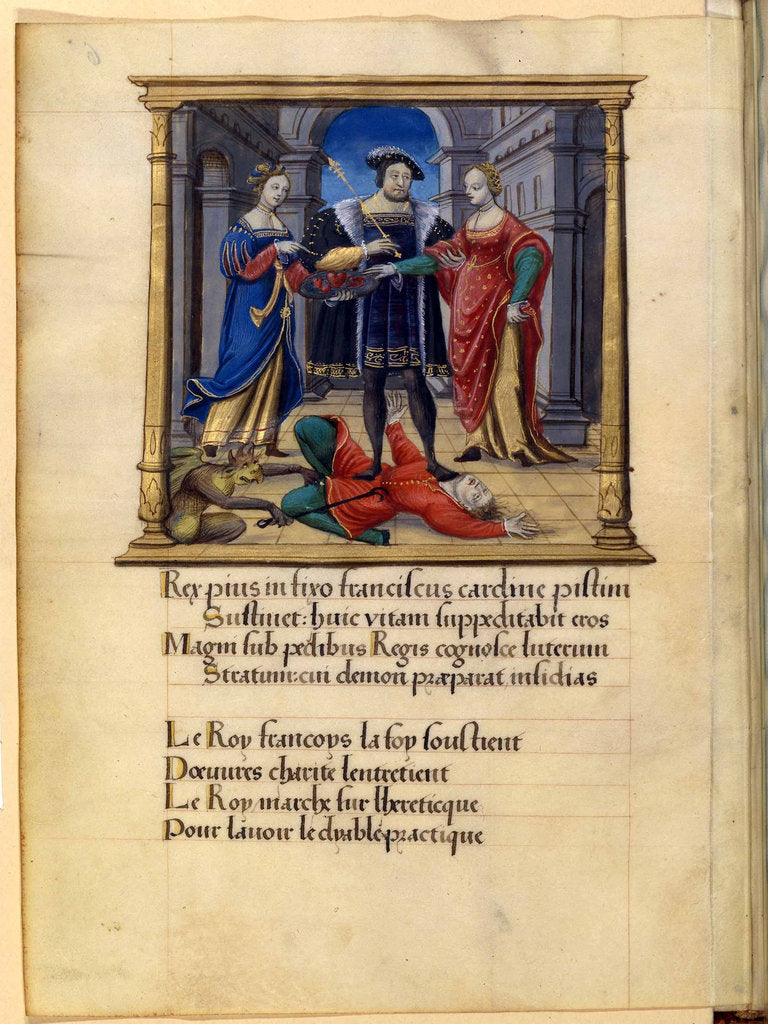 Rex pius in fixo franciscus cardine pistim
Sustinet: huic vitam suppeditabit eros
Magni sub pedibus Regis cognosce luterum
Stratum: cui demon præparat insidias
Le Roy francoys la foy soustient
Dœuures charite lentretient
Le Roy marche sur lhereticque
Pour lauoir le dyable practique